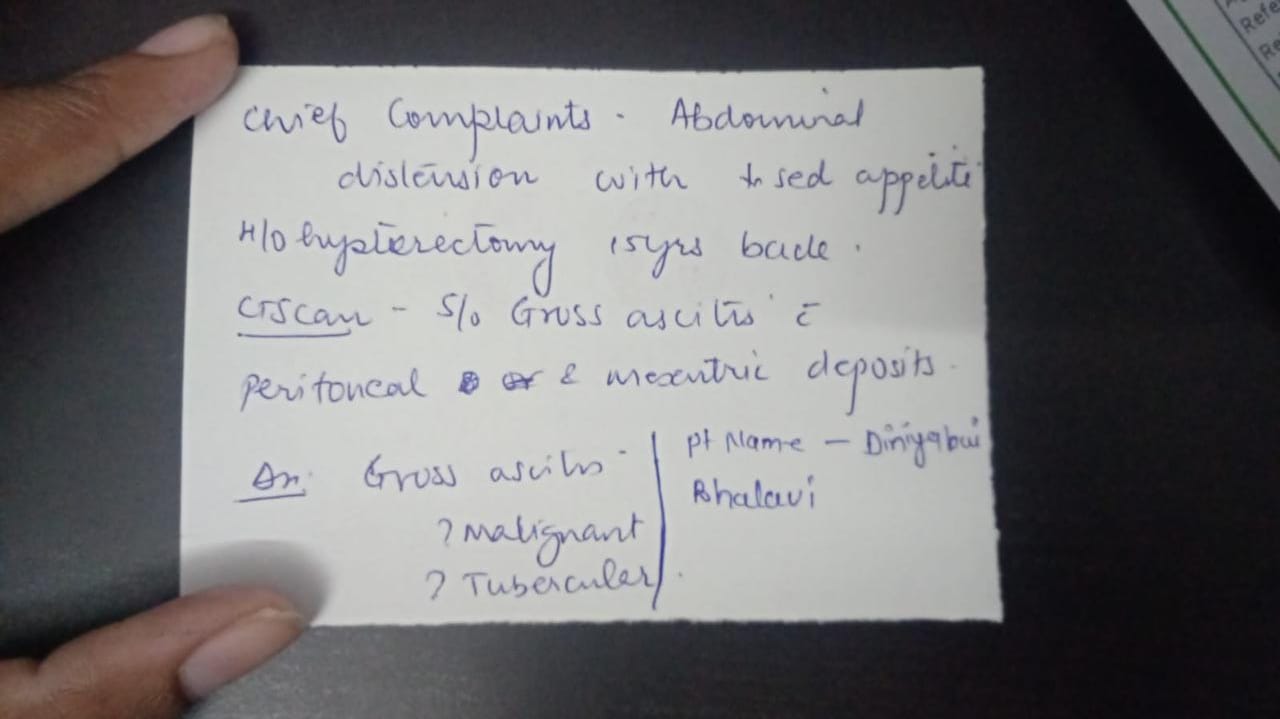 Chief Complaints - Abdominal
distension with ↓sed appetite
H/o hysterectomy 15yrs back.
CTScan - S/o Gross ascitis c̄
peritoneal & mesentric deposits.
Gross ascitis -
? Malignant
? Tubercular
Pt Name - Diniyabai
Bhalavi
Refe